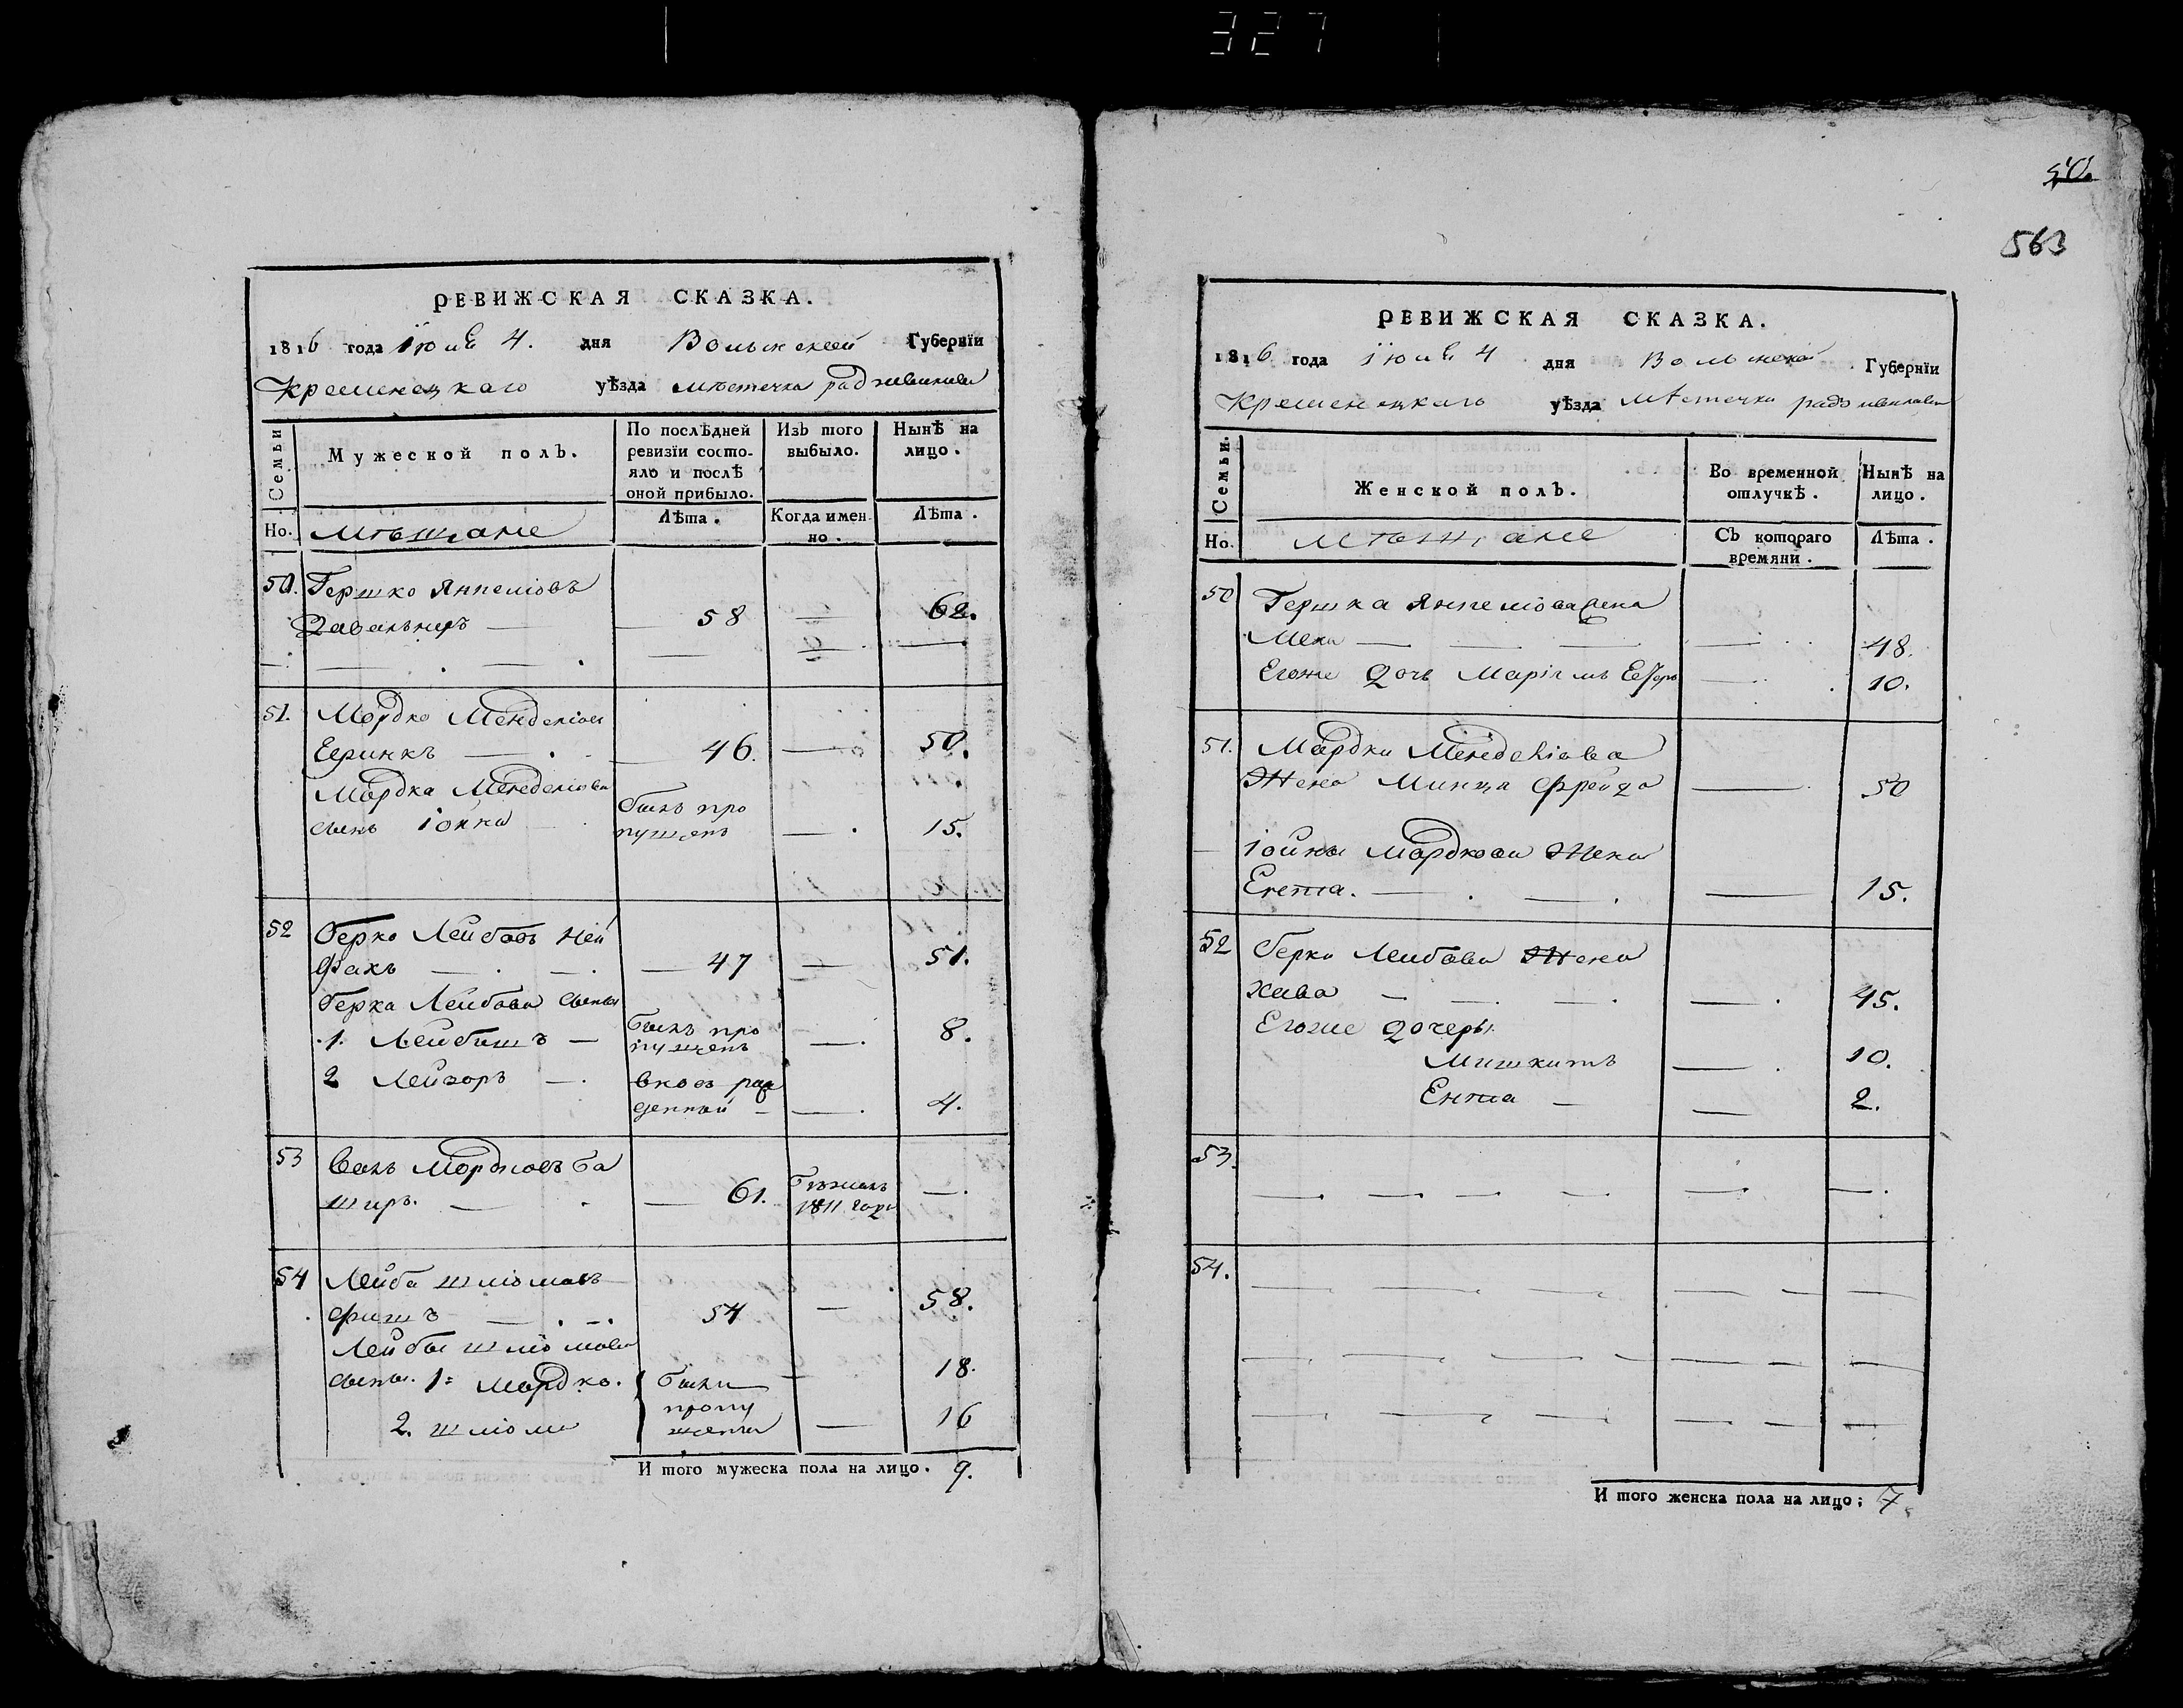 327
РЕВИЖСКАЯ СКАЗКА.
1816 года Iюня 4. дня Волынской Губернїи
Кременецкаго уѣзда мѣстечка радзивилова
Семьи
Мужеской полъ.
По послѣдней ревизїи состо-
яло и послѣ
оной прибыло.
Изъ того
выбыло.
Нынѣ на
лицо.
Но.
мѣщане
Лѣта.
Когда имен
но.
Лѣта.
50. Гершко
58 — 62.
51. Мордко Менделiовъ
46. — 50.
Мордка Менделiова
сынъ Iойна
былъ про
пущенъ — 15.
52 Берко Лейбовъ Ней
фахъ — 47 — 51.
Берка Лейбова сыны
1. Лейбишъ — былъ про
пущенъ — 8.
2 Лейзоръ — вновь рож
денный — 4.
53 Мордковъ Ба
широ. — 61. Бѣжалъ
1811 года —.
54 Лейба шлiомовъ
фишъ 54 — 58.
Лейбы шлiомова
сыны. 1: Мордко. были 18.
пропу
2. шлiома щены — 16
И того мужеска пола на лицо. 9.
50.
563
РЕВИЖСКАЯ СКАЗКА.
1816 года Iюня 4 дня Волынской Губернїи
Кременецкаго уѣзда мѣстечка радзивилова
Семьи.
Женской полъ.
Во временной
отлучкѣ.
Нынѣ на
лицо.
Но.
мѣщане
Съ котораго
времяни.
Лѣта.
50 Гершка жена
— 48.
Егоже дочь Марiямъ — 10.
51. Мордки Менделiова
Жена Минца Фрейда — 50
Iойны Мордкова Жена
Ента. — 15.
52 Берки Лейбова Жена
Хава — 45.
Егоже дочеры.
— 10.
Ента — 2.
53.
54.
И того женска пола на лицо; 7.